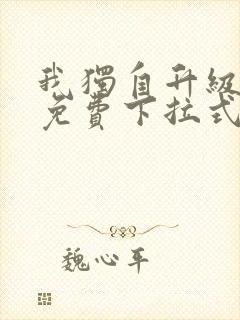 我獨自升級
免費下拉式
魏心平